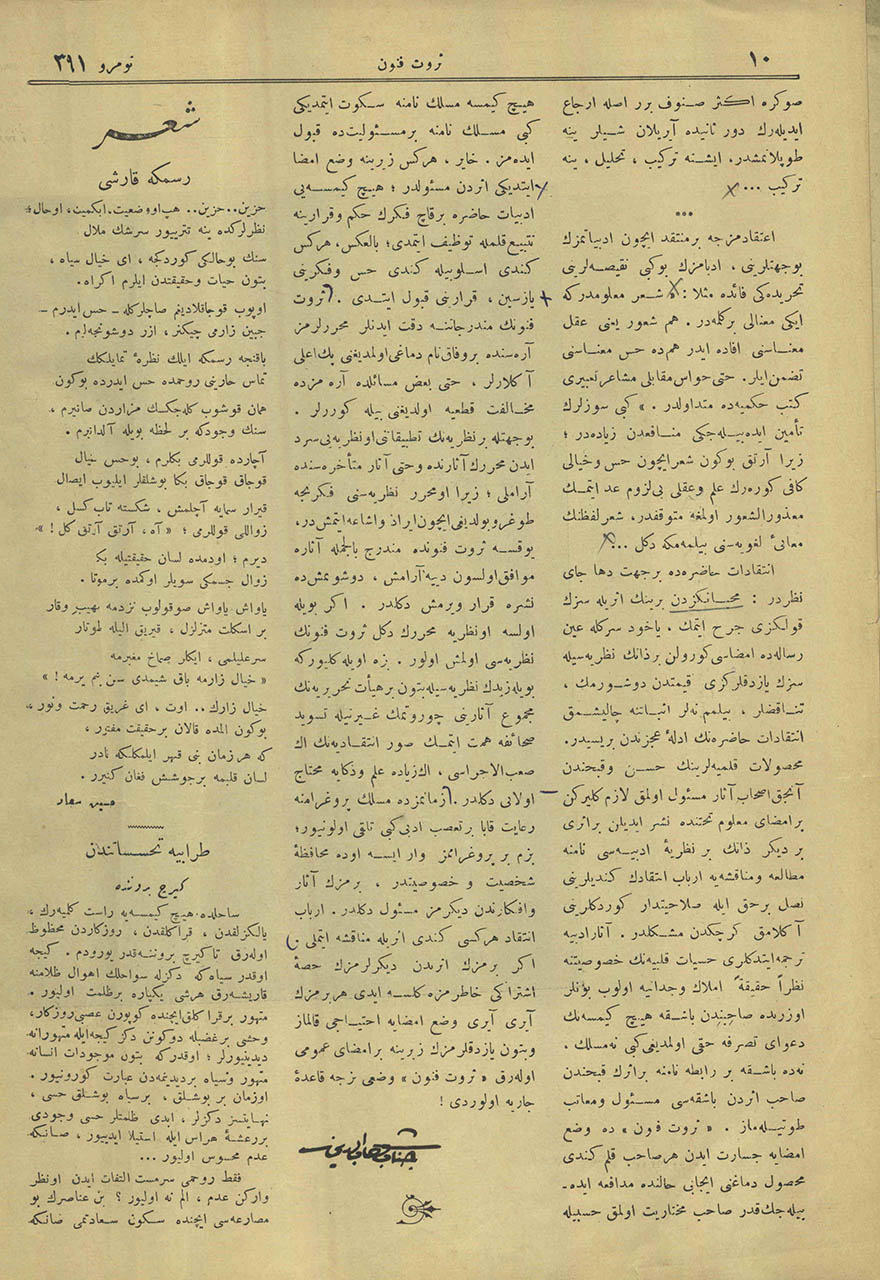 ١٠
ثروت فنون
نومرو ٣٩١
صوكره اكثر صنوف برر اصله ارجاع
ايديله‌رك دور ثانيده آريلان شيلر ينه
طوپلانمشدر. ايشته تركيب ، تحليل ، ينه
تركيب ...
***
اعتقادمزجه برمنتقد ايچون ادبياتمزك
بوجهتلرينى ، ادبامزك بوكبى نقيصه‌لرينى
تحريده‌كى فائده مثلا : « شعر معلومدركه
ايكى معنالى بركله‌در . هم شعور يعنى عقل
معناسنى افاده ايدر هم‌ده حس معناسنى
تضمن ايلر. حتى حواس مقابلى مشاعر تعبيرى
كتب حكميه‌ده متداولدر . » كبى سوزلرك
تأمين ايده‌بيله‌جكى منافعدن زياده‌در ؛
زيرا آرتق بوكون شعر ايچون حس وخيالى
كافى كوره‌رك علم وعقلى بى‌لزوم عد ايتمك
معذور الشعور اولمغه متوقفدر، شعر لفظنك
معانئ لغويه‌سنى بيلمه‌مكه دكل ...
انتقادات حاضره‌ده برجهت دها جاى
نظردر : محبانكزدن برينك اثريله سزك
قولكزى جرح ايتمك . ياخود سركله عين
رساله‌ده امضاسى كورولن برذاتك نظريه‌سيله
سزك يازدقلركزى قيمتدن دوشورمك ،
تناقضلر ، بيلمم نه‌لر اثباتنه چاليشمق
انتقادات حاضره‌نك ادلهٔ عجزندن بريسيدر.
محصولات قلميه‌لرينك حسن وقبحندن
آنجق اصحاب آثار مسئول اولمق لازم كليركن
بر امضاى معلوم تحتنده نشر ايديلن براثرى
بر ديكر ذاتك بر نظريهٔ ادبيه‌سى نامنه
مطالعه ومناقشه‌يه ارباب انتقادك كنديلرينى
نصل برحق ايله صلاحيتدار كوردكلرينى
آكلامق كرچكدن مشكلدر . آثار ادبيه
ترجمه ايتدكلرى حسيات قلبيه‌نك خصوصيتنه
نظراً حقيقةً املاك وجدانيه اولوب بونلر
اوزرنده صاحبندن باشقه هيچ كيمسه‌نك
دعواى تصرفه حقى اولمديغى كبى نه‌مسلك .
نه‌ده باشقه بر رابطه نامنه براثرك قبحندن
صاحب اثردن باشقه‌سى مسئول ومعاتب
طوتيله‌ماز . « ثروت فنون » ده وضع
امضايه جسارت ايدن هر صاحب قلم كندى
محصول دماغنى ايجابى حالنده مدافعه ايده-
بيله‌جك‌قدر صاحب مختاريت اولمق حسبيله
هيچ كيمسه مسلك نامنه سكوت ايتمديكى
كبى مسلك نامنه برمسئوليت‌ده قبول
ايده‌مز . خاير ، هركس زيرينه وضع امضا
ايتديكى اثردن مسئولدر ؛ هيچ كيمسه‌يى
ادبيات حاضره برقاچ فكرك حكم وقرارينه
تتبيع قلمله توظيف ايتمدى ؛ بالعكس، هركس
كندى اسلوبيله كندى حس وفكرينى
يازسين ، قرارنى قبول ايتدى . ثروت
فنونك مندرجاتنه دقت ايدنلر محررلرمز
آره‌سنده بر وفاق تام دماغى اولمديغنى پك‌اعلى
آكلارلر ، حتى بعض مسائلده آره مزده
مخالفت قطعيه اولديغنى بيله كوررلر .
بوجهتله بر نظريه‌نك تطبيقاتنى او نظريه‌يى سرد
ايدن محررك آثارنده وحتى آثار متأخره‌سنده
آراملى ؛ زيرا او محرر نظريه‌سنى فكرنجه
طوغرو بولديغى ايچون ايراد واشاعه ايتمش‌در،
يوقسه ثروت فنونده مندرج بالجمله آثاره
موافق اولسون دييه آرامش ، دوشونمش‌ده
نشره قرار ويرمش دكلدر . اكر بويله
اولسه اونظريه محررك دكل ثروت فنونك
نظريه‌سى اولمش اولور . بزه اويله كليوركه
بويله زيدك نظريه‌سيله بتون بر هيأت تحريريه‌نك
مجموع آثارينى چوروتمك غيرتيله تسويد
صحائفه همت ايتمك صور انتقاديه‌نك اك
صعب‌الاجراسى ، اك‌زياده علم وذكايه محتاج
اولانى دكلدر . زمانمزده مسلك پروغرامنه
رعايت قابا بر تعصب ادبى كبى تلقى اولونيور؛
بزم بر پروغرامز وار ايسه اوده محافظهٔ
شخصيت و خصوصيتدر ، برمزك آثار
وافكارندن ديكرمز مسئول دكلدر. ارباب
انتقاد هركسى كندى اثريله مناقشه ايتملى .
اكر برمزك اثرندن ديكرلرمزك حصهٔ
اشتراكى خاطرمزه كلسه ايدى هر برمزك
آيرى آيرى وضع امضايه احتياجى قالماز
وبتون يازدقلرمزك زيرينه بر امضاى عمومى
اوله‌رق « ثروت فنون » وضعى بزجه قاعدهٔ
جاريه اولوردى !
جناب شهاب الدين
شعر
رسمكه قارشى
حزين.. حزين.. هپ اووضعيت. ابكميت، اوحال؛
نظرلركده ينه تتريیور سرشك ملال
سنك بوحالكى كوردكجه ، اى خيال سياه ،
بتون حيات وحقيقتدن ايلرم اكراه.
اوپوب قوجاقلاديغم صاچلركله - حس ايدرم -
جبين زارمى چيكنر ، ازر دوشونجه‌لرم .
باقنجه رسمكه ايلك نظرهٔ تمايلكك
تماس حارينى روحمده حس ايدرده بوكون
همان قوشوب كله‌جكسك مزاردن صانيرم ،
سنك وجودكه بر لحظه بويله آلدانيرم .
آچارده قوللرمى بكلرم ، بوحس خيال
قوجاق قوجاق بكا بوشلقلر ايليوب ايصال
قيرار سمايه آچلمش ، شكسته تاب كسل ،
زواللى قوللرمى ؛ « آه ، آرتق آرتق كل ! »
ديرم ؛ اودمده لسان حقيقتيله بكا
زوال جسمكى سويلر اوكمده برموتا .
ياواش ياواش صوقولوب نزدمه مهيب وقار
بر اسكلت متزلزل ، قيريق اليله طوتار
سرعليلمى ، ايكلر صماخ مغبرمه
« خيال زارمه باق شيمدى سن بنم يرمه ! »
خيال زارك .. اوت ، اى غريق رحمت ونور ،
بوكون المده قالان برحقيقت مغتور ،
كه هر زمان بنى قهر ايلمكلكه نادر
لسان قلبمه برجوشش فغان كتيرر .
حسين سعاد
طرابيه تحسساتندن
كيرج بروننده
ساحلده هيچ كيمسه‌يه راست كلميه‌رك ،
يالكزلغدن ، قراكلقدن ، روزكاردن محظوظ
اوله‌رق تاكيرج بروننه‌قدر يورودم . كيجه
اوقدر سياه‌كه دكزله سواحلك اهوال ظلامنه
قاريشه‌رق هرشى يكپاره برظلمت اوليور .
متهور برقراكلق ايچنده كوپورن عصبى روزكار،
وحشى برغضبله دوكونن دكز كيجه ايله متهورانه
ديدينيورلر ؛ اوقدركه بتون موجودات انسانه
متهور وسياه برديدينمه‌دن عبارت كورونيور .
اوزمان بر بوشلق ، برسياه بوشلق حسى ،
نهايتسز دكزلر ، ابدى ظلمتلر حسى وجودى
بررعشهٔ هراس ايله استيلا ايدييور ، صانكه
عدم محسوس اوليور ...
فقط روحمى سرمست التفات ايدن اونظر
واركن عدم ، الم نه اوليور ؟ بن عناصرك بو
مصارعه‌سى ايچنده سكون سعادتمى صانكه